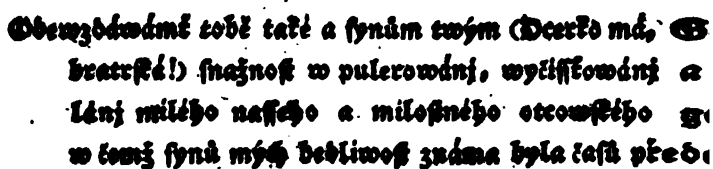 Obewzdáwámť tobě také a synům twým (Dcerko má,
bratrská!) snažnost w pulerowánj, wyčišťkowánj a
lánj milého nassého a milostného otcowského
w čemž synů mých bedliwost známa byla času před